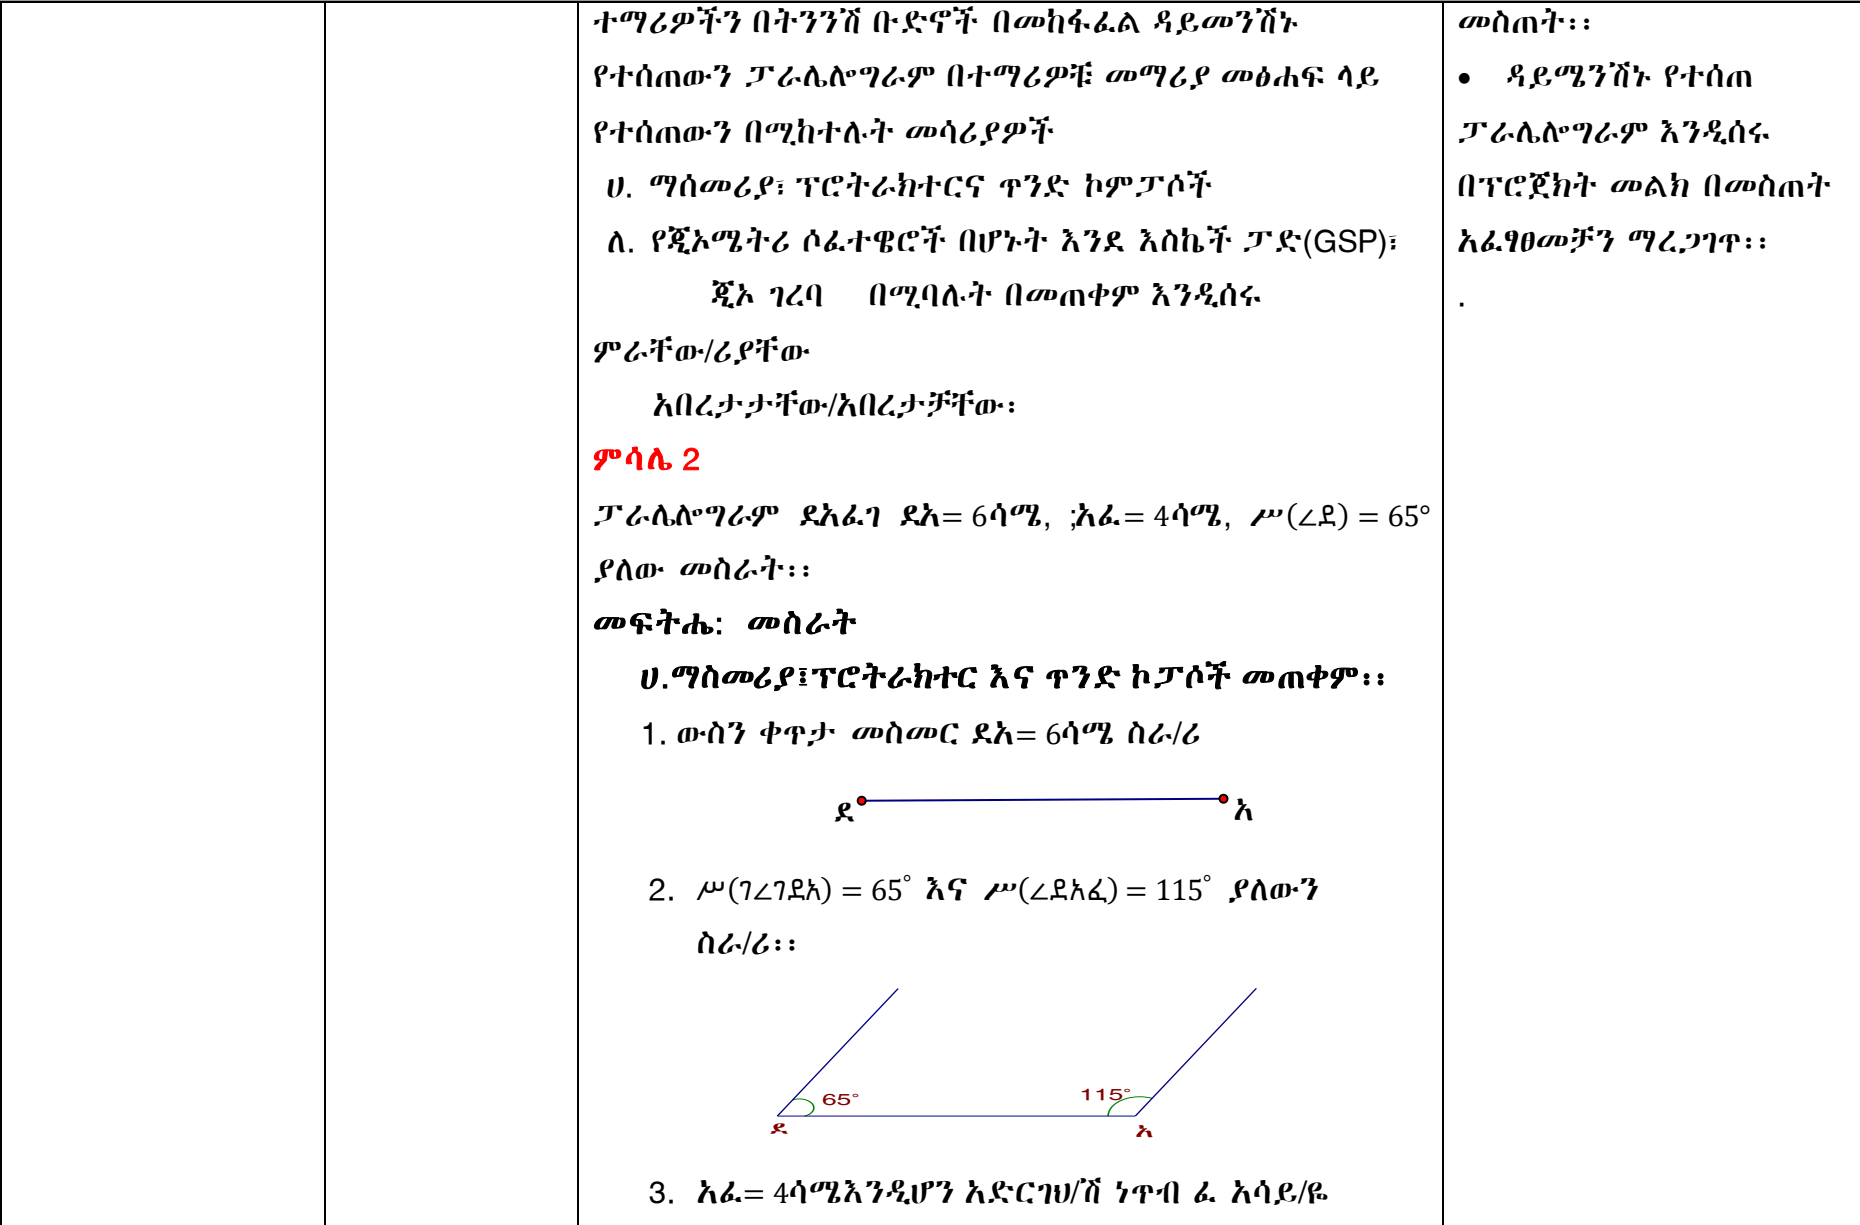 ተማሪዎችን በትንንሽ ቡድኖች በመከፋፈል ዳይመንሽኑ
የተሰጠውን ፓራሌሎግራም በተማሪዎቹ መማሪያ መፅሐፍ ላይ
የተሰጠውን በሚከተሉት መሳሪያዎች
ሀ. ማሰመሪያ፣ ፕሮትራክተርና ጥንድ ኮምፓሶች
ለ. የጂኦሜትሪ ሶፈተዌሮች በሆኑት እንደ እስኬች ፓድ(GSP)፣
ጂኦ ገረባ በሚባሉት በመጠቀም እንዲሰሩ
ምራቸው/ሪያቸው
አበረታታቸው/አበረታቻቸው፡
ምሳሌ 2
ፓራሌሎግራም ደአፈገ ደአ= 6ሳሜ, ;አፈ= 4ሳሜ, ሥ(∠ደ) = 65°
ያለው መስራት፡፡
መፍትሔ: መስራት
ሀ.ማስመሪያ፤ፕሮትራክተር እና ጥንድ ኮፓሶች መጠቀም፡፡
1. ውስን ቀጥታ መስመር ደአ= 6ሳሜ ስራ/ሪ
ደ አ
2. ሥ(ገ∠ገደአ) = 65° እና ሥ(∠ደአፈ) = 115° ያለውን
ስራ/ሪ፡፡
65° 115°
ደ አ
3. አፈ= 4ሳሜእንዲሆን አድርገህ/ሽ ነጥብ ፈ አሳይ/ዬ
መስጠት፡፡
• ዳይሜንሽኑ የተሰጠ
ፓራሌሎግራም እንዲሰሩ
በፕሮጀክት መልክ በመስጠት
አፈፃፀመቻን ማረጋገጥ፡፡
.